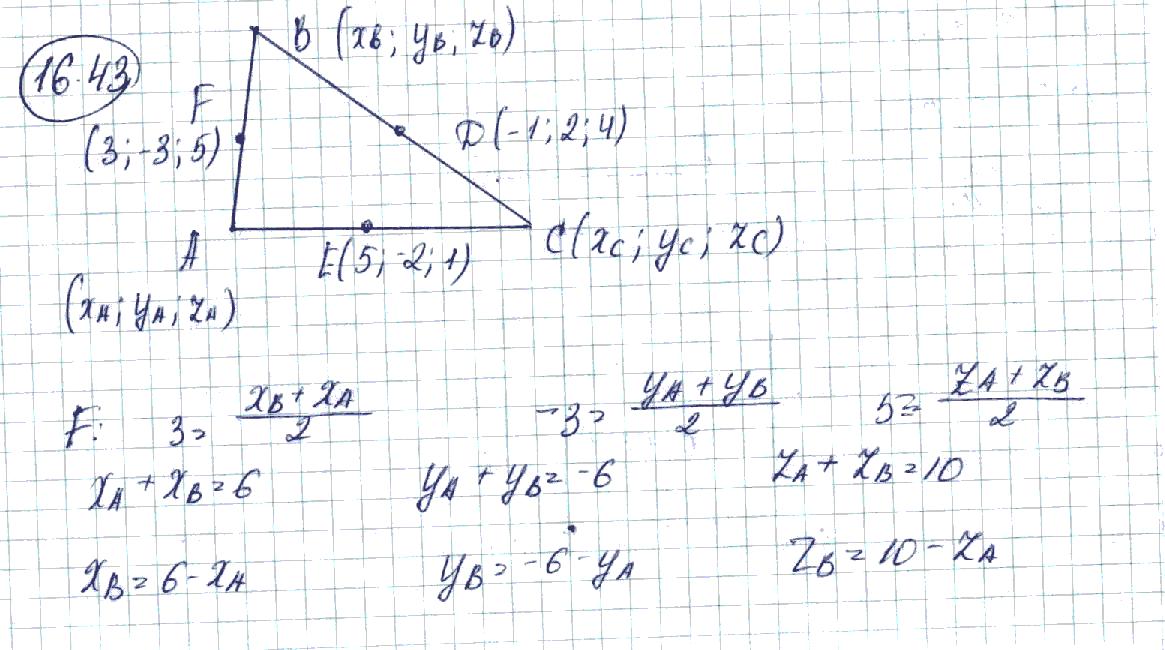 16.43
B (xB; yB; zB)
F
(3; -3; 5)
D(-1; 2; 4)
A
E(5; -2; 1)
C(xC; yC; zC)
(xA; yA; zA)
F: 3 = (xB + xA)/2 -3 = (yA + yB)/2 5 = (zA + zB)/2
xA + xB = 6 yA + yB = -6 zA + zB = 10
xB = 6 - xA yB = -6 - yA zB = 10 - zA